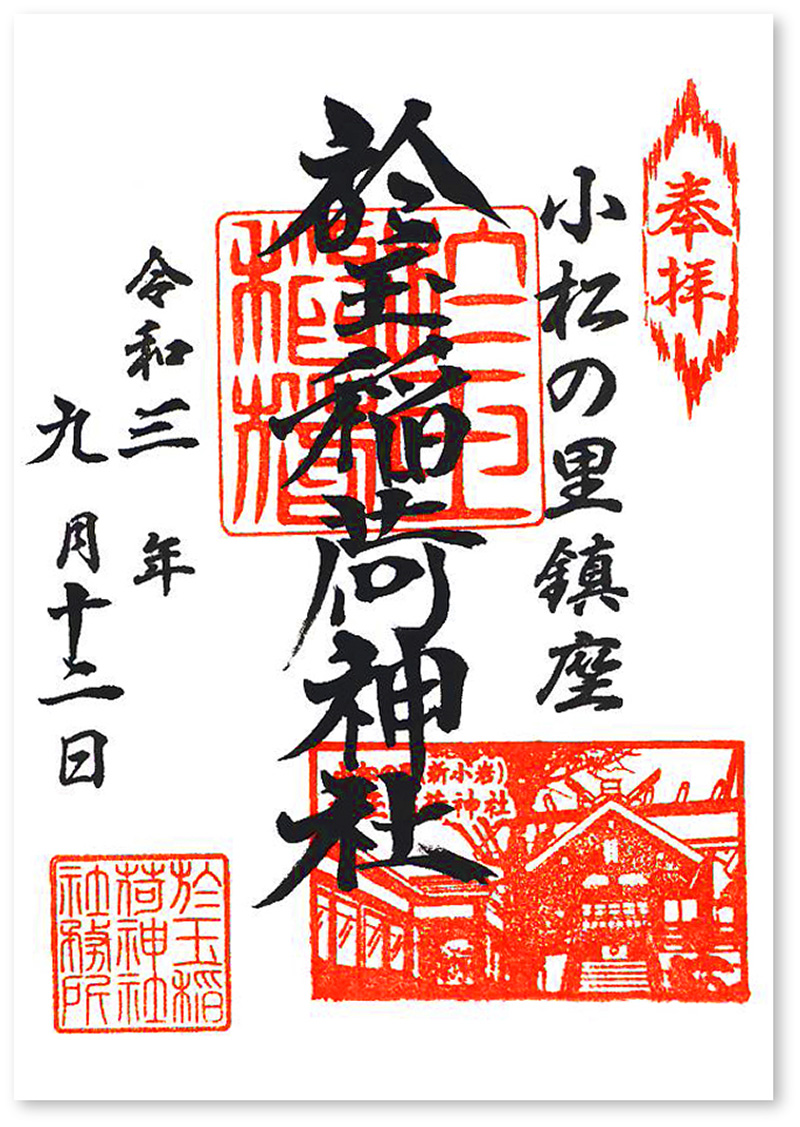 奉拝
小松の里鎮座
於玉稲荷神社
令和三年
九月十二日
(新小岩)
神社
於玉稲
荷神社
社務所